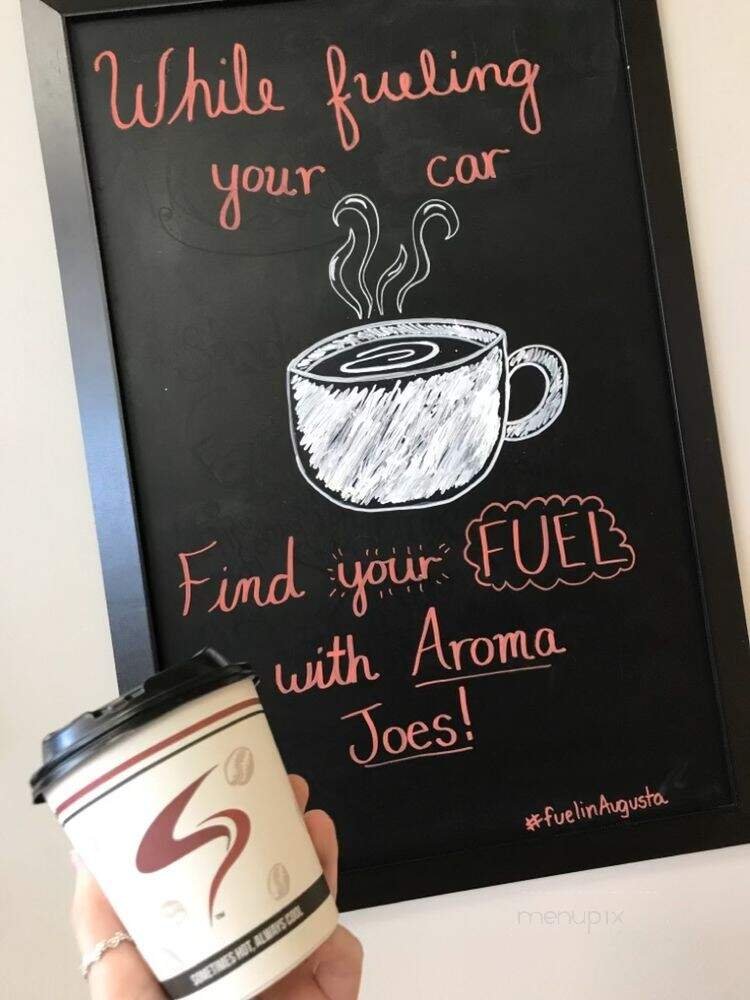 While fueling
your car
Find your FUEL
with Aroma
Joes!
#fuelinAugusta
SOMETIMES HOT, ALWAYS COOL
TM
menupix